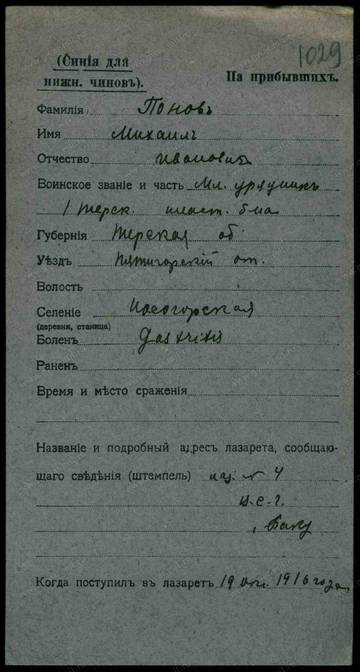 1029
(Синія для
нижн. чиновъ).
На прибывшихъ.
Фамилія Поповъ
Имя Михаилъ
Отчество Ивановичъ
Воинское званіе и часть Мл. урядникъ
1 Терск. пласт. б-на
Губернія Терская об.
Уѣздъ Пятигорскій от.
Волость
Селеніе
(деревня, станица)
Боленъ Gastritis
Раненъ
Время и мѣсто сраженія
Названіе и подробный адресъ лазарета, сообщаю-
щаго свѣдѣнія (штемпель) лаз. № 4
в. с. г.
Баку
Когда поступилъ въ лазаретъ 19 1916 года